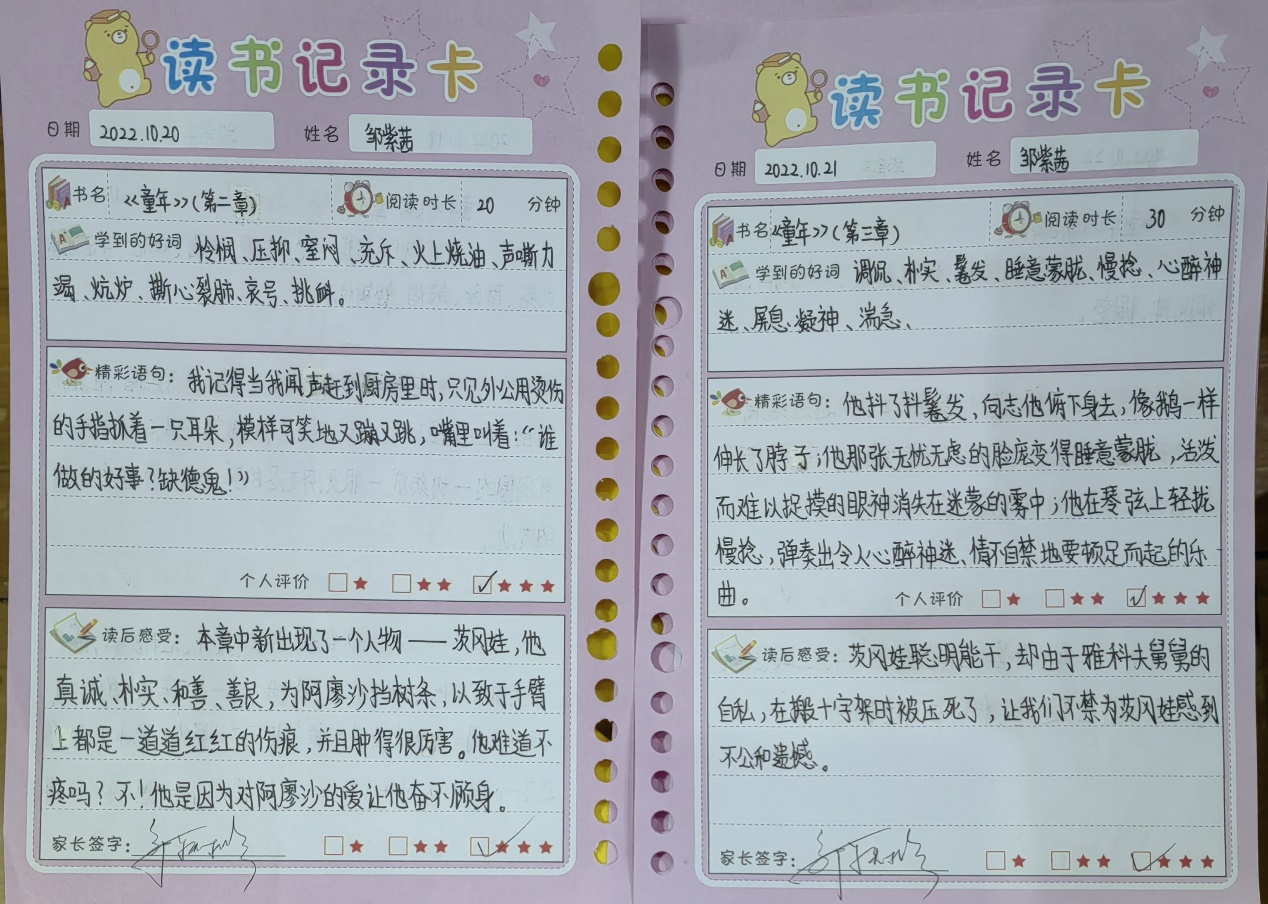 读书记录卡
日期 2022.10.20 姓名 邹紫茜
书名 《童年》(第二章) 阅读时长 20 分钟
学到的好词 怜悯、压抑、窒闷、充斥、火上烧油、声嘶力
竭、炕炉、撕心裂肺、哀号、挑衅。
精彩语句：我记得当我闻声赶到厨房里时,只见外公用烫伤
的手挡抓着一只耳朵,模样可笑地又蹦又跳,嘴里叫着:“谁
做的好事?缺德鬼!”
个人评价 ★ ★★ ✓★★★
读后感受：本章中新出现了一个人物——茨冈娃,他
真诚、朴实、和善、善良,为阿廖沙挡树条,以致于手臂
上都是一道道红红的伤痕,并且肿得很厉害。他难道不
疼吗?不!他是因为对阿廖沙的爱让他奋不顾身。
家长签字： ★ ★★ ✓★★★
读书记录卡
日期 2022.10.21 姓名 邹紫茜
书名 《童年》(第三章) 阅读时长 30 分钟
学到的好词 调侃、朴实、鬈发、睡意蒙胧、慢捻、心醉神
迷、屏息凝神、湍急、
精彩语句：他抖了抖鬈发,向志他俯下身去,像鹅一样
伸长了脖子;他那张无忧无虑的脸庞变得睡意蒙胧,活泼
而难以捉摸的眼神消失在迷蒙的雾中;他在琴弦上轻拢
慢捻,弹奏出令人心醉神迷、情不自禁地要顿足而起的乐
曲。
个人评价 ★ ★★ ✓★★★
读后感受：茨冈娃聪明能干,却由于雅科夫舅舅的
自私,在搬十字架时被压死了,让我们不禁为茨冈娃感到
不公和遗憾。
家长签字： ★ ★★ ✓★★★